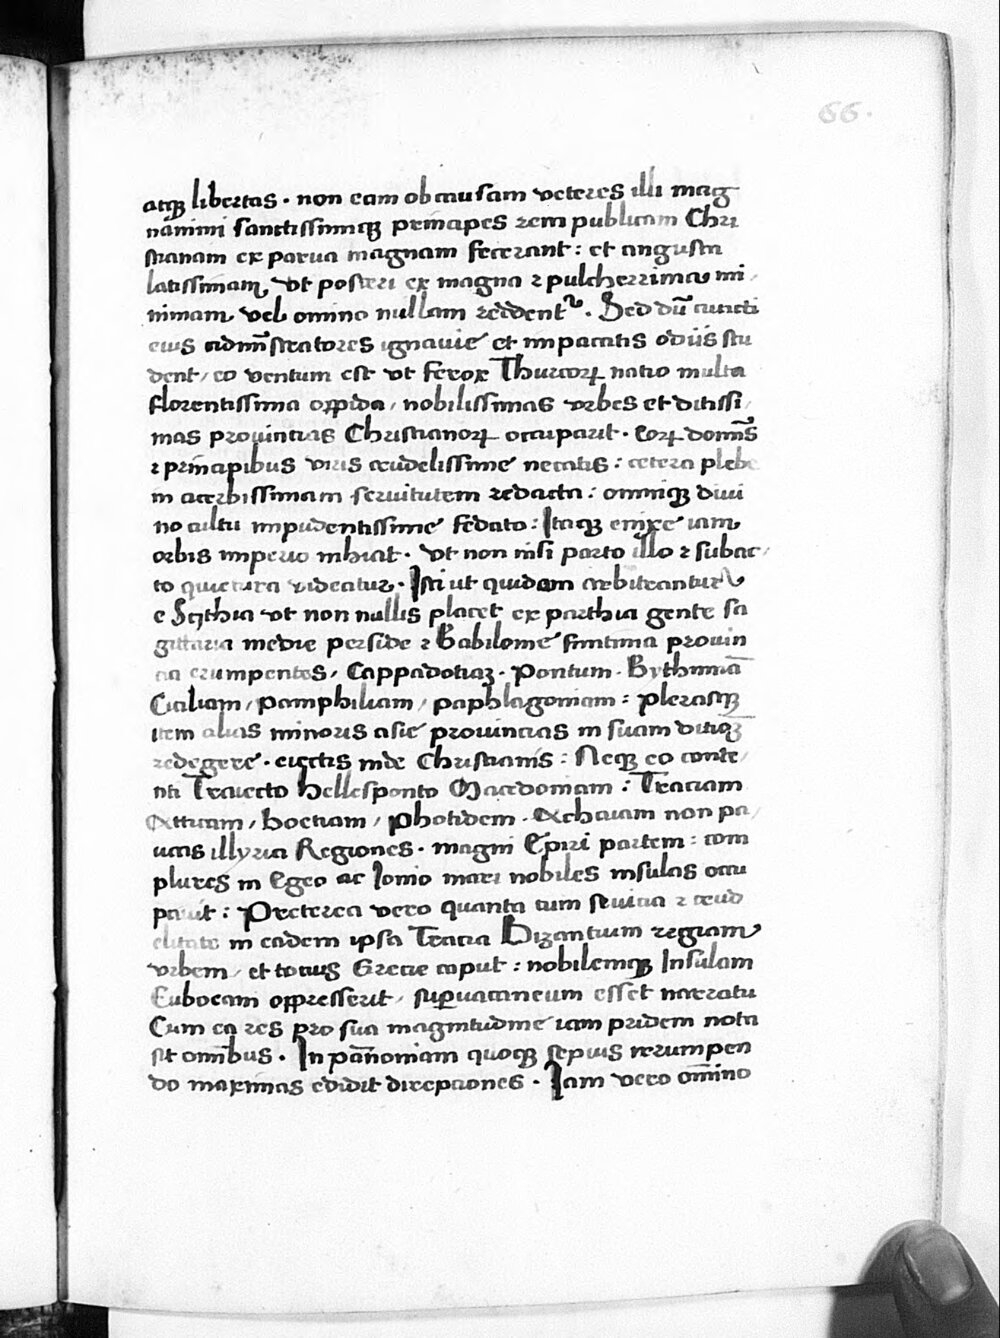 66.
atqꝫ libertas · non eam ob causam veteres illi mag
nanimi sanctissimiqꝫ principes rem publicam Chri
stianam ex parua magnam fecerant : et angusta
latissimam, vt posteri ex magna ⁊ pulcherrima mi /
nimam vel omino nullam reddent᷑ . Sed dū cuncti
eius admīstratores ignauie et impacatis odiis stu
dent / eo ventum est vt ferox Thurcoꝝ natio multa
florentissima oppida / nobilissimas vrbes et ditissi /
mas prouincias Christianoꝝ occuparit · Eoꝝ domīs
⁊ principibus viris crudelissime necatis : cetera plebe
in acerbissimam seruitutem redacta : omniqꝫ diui
no cultu impudentissime fedato : Itaqꝫ enixe iam
orbis imperio inhiat · vt non nisi parto illo ⁊ subac /
to quietura videatur · Isti ut quidam arbitrantur
e Scythia vt non nullis placet ex parthia gente sa
gittaria medie perside ⁊ Babilonie finitima prouin
cia erumpentes / Cappadotiaꝫ · Pontum · Bythiniā
Ciliciam / pamphiliam / paphlagoniam : plerasqꝫ
item alias minoris asie prouincias in suam ditioꝫ
redegere · eiectis inde Christianis : Neqꝫ eo conte /
nti Traiecto hellesponto Macedoniam : Traciam
Atticam / boetiam / photidem · Achaiam non pa /
ucas illyria Regiones · magni Epiri partem : com
plures in Egeo ac Ionio mari nobiles insulas occu
pauit : Preterea vero quanta cum seuicia ⁊ crud
elitate in eadem ipsa Tracia Bizantium regiam
vrbem / et totius Grecie caput : nobilemqꝫ Insulam
Euboeam oppresserit / suꝑuacaneum esset narratu
Cum ea res pro sua magnitudine iam pridem nota
sit omībus · In pānoniam quoqꝫ sepius irrumpen
do maximas edidit direptiones · Iam vero om̄ino